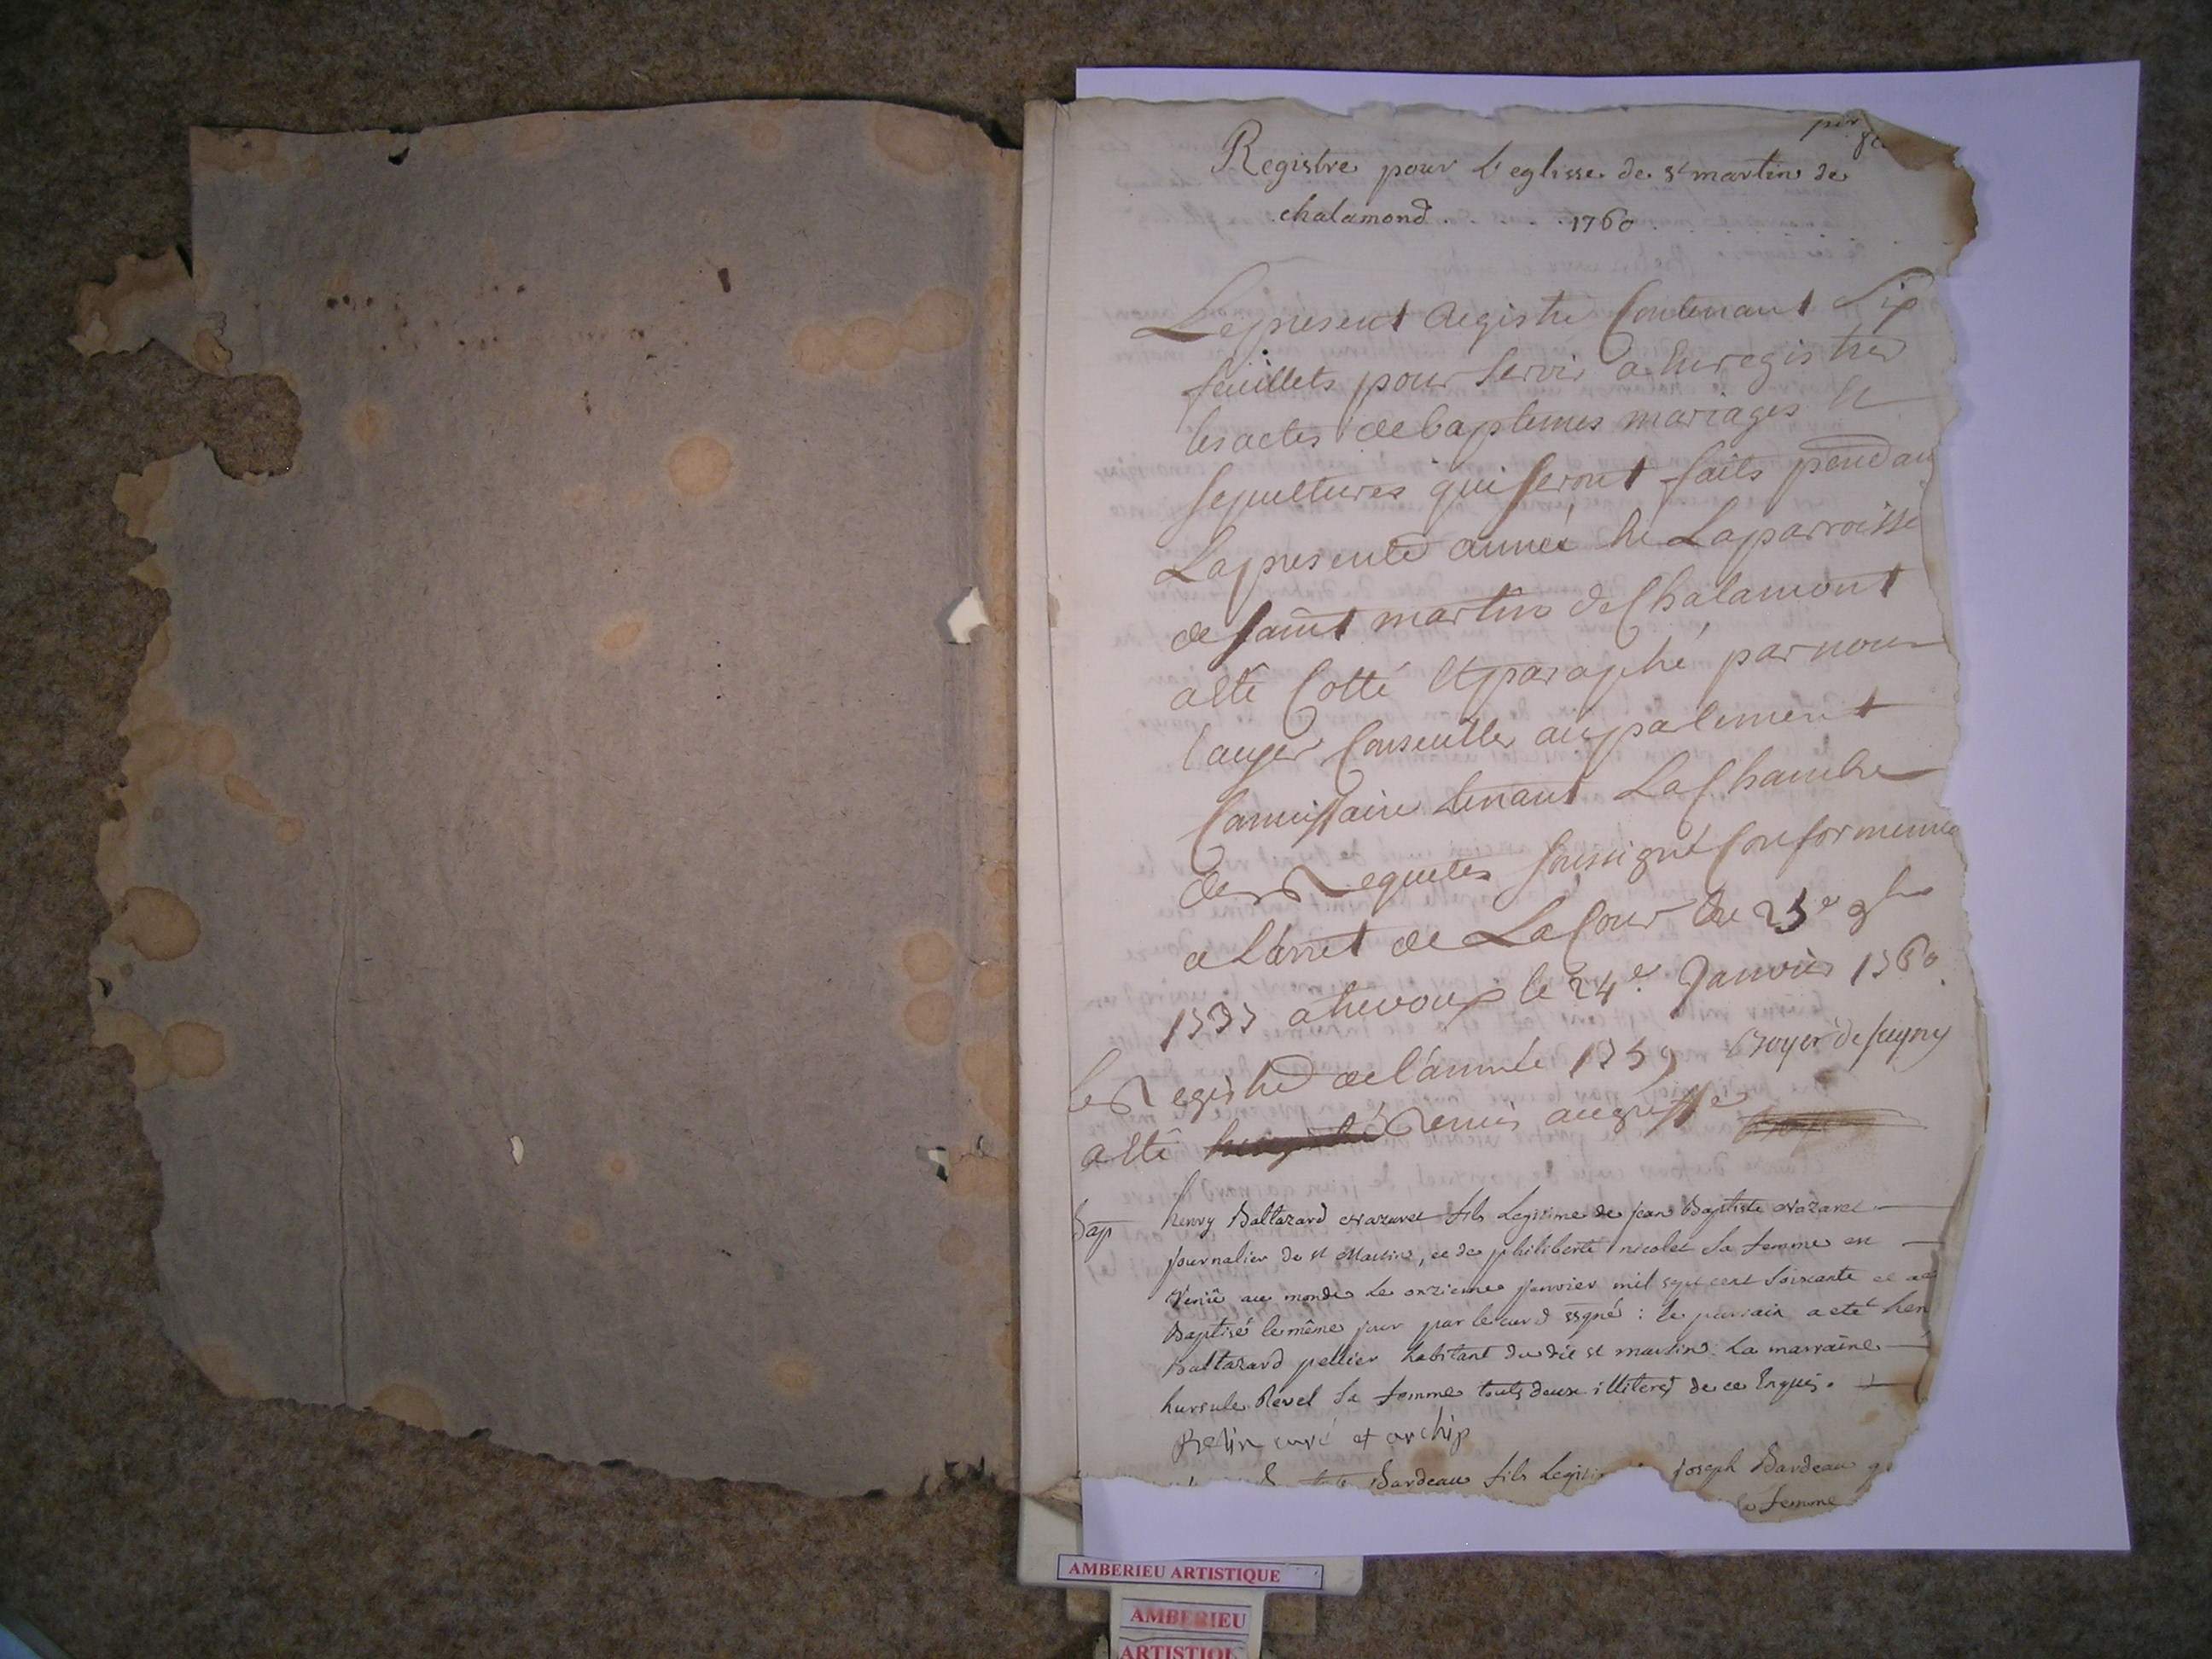 Registre pour l'eglisse de st martin de
chalamond . 1760
Le present Registre Contenant Six
feuillets pour servir a Enregistrer
les actes de baptemes mariages Et
sepultures qui seront faits pendan
La presente année de La parroisse
de saint martin de Chalamont
a Eté Cotté Et paraphé par nous
Conseiller au parlement
Commissaire tenant La Chambre
des Requetes soussigné Conformeme
a l'arret de La Cour du 9bre
a trevoux le 24e Janvier 1760
Le Registre de l'année 1759
a Eté Remis au greffe
Bap henry Baltazard Nazaret fils Legitime de jean Baptiste Nazaret
journalier de st Martin, et de philiberte nicolet sa femme est
venü au monde le onzieme janvier mil sept cent soixante et a
Baptisé le même jour par le curé ssgné : le parrain a eté hen
Baltazard pellier habitant du dit st martin. La marraine
hursule Revel sa femme touts deux illiteres de ce Enquis.
curé et archip
Bardeau fils Legiti joseph Bardeau
femme
AMBERIEU ARTISTIQUE
AMBERIEU
ARTISTIQU